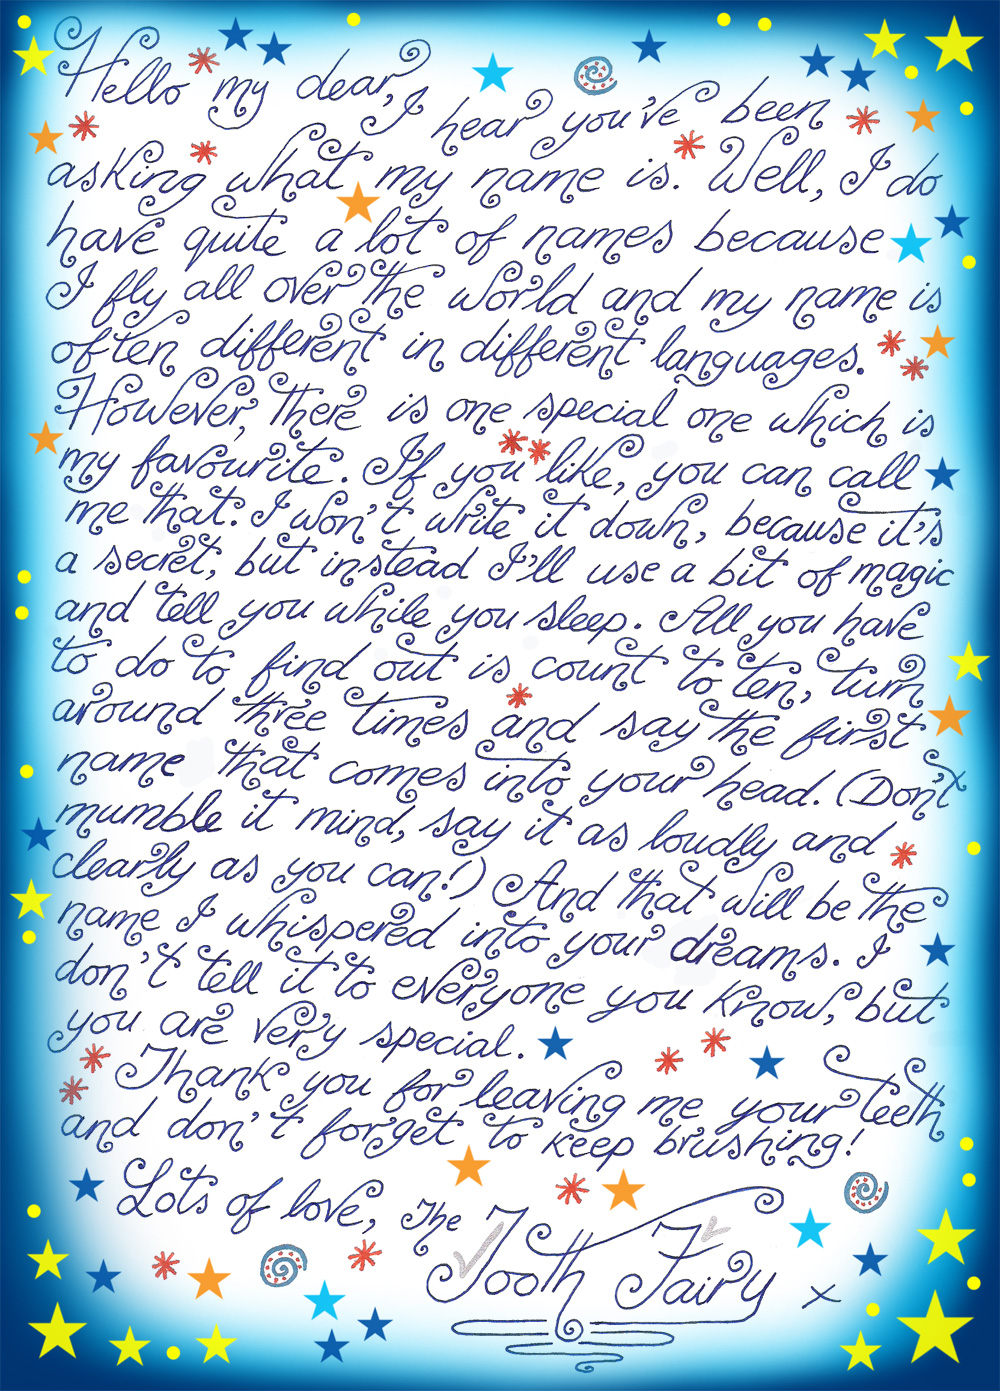 Hello my dear,
I hear you've been
asking what my name is. Well, I do
have quite a lot of names because
I fly all over the world and my name is
often different in different languages.
However, there is one special one which is
my favourite. If you like, you can call
me that. I won't write it down, because it's
a secret, but instead I'll use a bit of magic
and tell you while you sleep. All you have
to do to find out is count to ten, turn
around three times and say the first
name that comes into your head. (Don't
mumble it mind, say it as loudly and
clearly as you can!) And that will be the
name I whispered into your dreams. I
don't tell it to everyone you know, but
you are very special.
Thank you for leaving me your teeth
and don't forget to keep brushing!
Lots of love, The
Tooth Fairy x